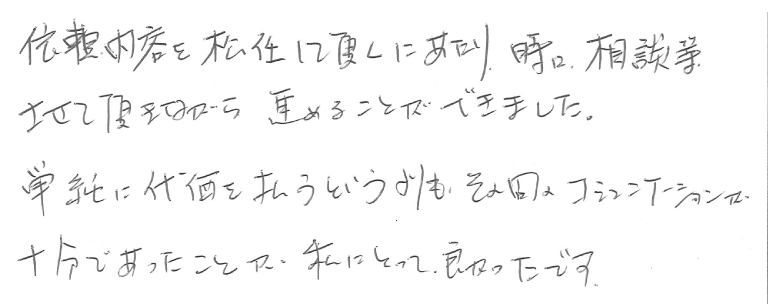 依頼内容を松任して頂くにあたり、時に、相談等
させて頂きながら 進めることができました。
単純に代価を払うというよりも、その回のコミュニケーションが
十分であったことが、私にとって、良かったです。